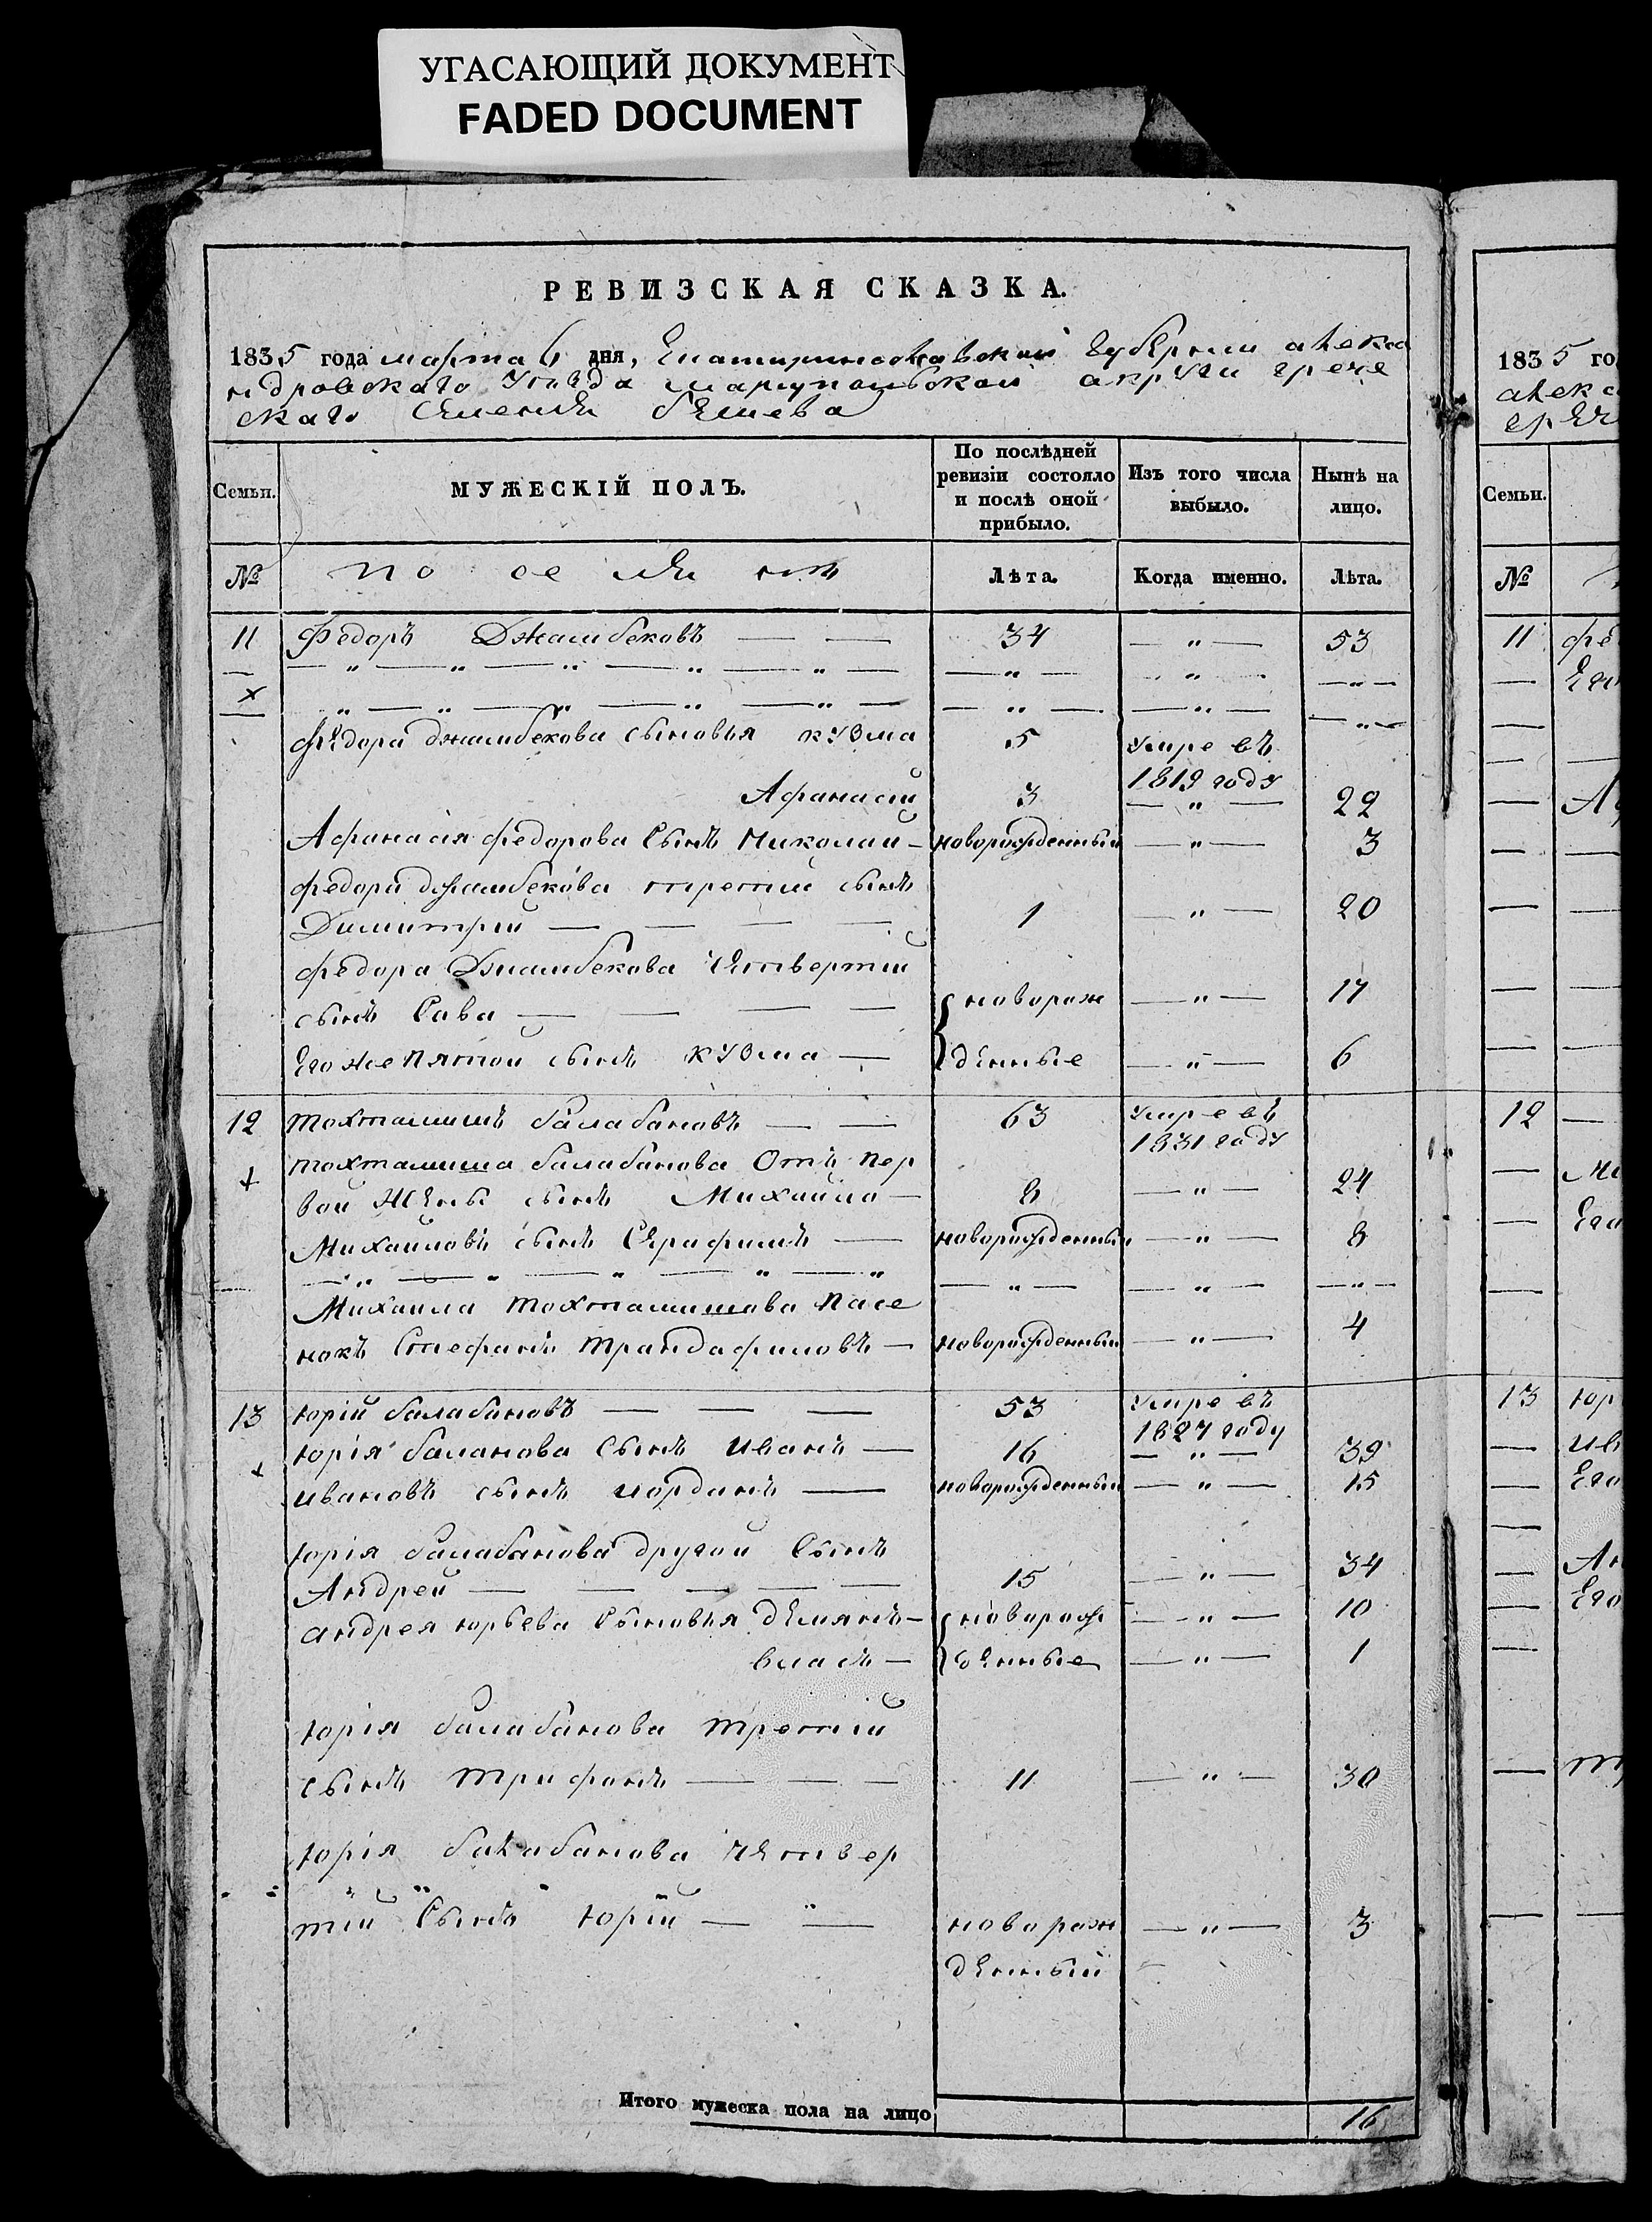 УГАСАЮЩИЙ ДОКУМЕНТ
FADED DOCUMENT
РЕВИЗСКАЯ СКАЗКА.
1835 года марта 6 дня, Екатеринославской губернии алекса
ндровскаго уѣзда мариупольской округи грече
скаго селенія бешева
Семьи. МУЖЕСКІЙ ПОЛЪ. По послѣдней ревизіи состояло и послѣ оной прибыло. Изъ того числа выбыло. Нынѣ на лицо.
№ поселянъ Лѣта. Когда именно. Лѣта.
11 Федоръ Джамбековъ — — 34 — " — 53
— — " — " — " — " — " — — " — — " — — " —
x " — " — " — " — " — — " — — " — — " —
Федора джамбекова сыновья кузма 5 умре въ 1819 году
Афанасій 3 — " — 22
Афанасія федорова сынъ Николай — новорожденный — " — 3
федора джамбекова третій сынъ
Димитрій — — — — 1 — " — 20
федора Джамбекова Четвертій
сынъ Сава — — — — новорож — " — 17
Его же пятой сынъ кузма — денные — " — 6
12 тохтамишъ балабановъ — — 63 умре въ 1831 году
x тохтамиша балабанова Отъ пер
вой жены сынъ Михайла — 8 — " — 24
Михаиловъ сынъ Серафимъ — новорожденный — " — 8
— " — " — " — " — " — " — — " — — " —
Михаила тохтамишова пасе
нокъ Стефанъ трандафиловъ — новорожденный — " — 4
13 юрій балабановъ — — — 53 умре въ 1827 году
юрія баланова сынъ иванъ — 16 — " — 39
x ивановъ сынъ иорданъ — новорожденный — " — 15
юрія балабанова другой сынъ
Андрей — — — — — 15 — " — 34
андрея юрьева сыновья демянъ — новорож — " — 10
власъ — денные — " — 1
юрія балабанова третій
сынъ трифанъ — — — 11 — " — 30
юрія балабанова четвер
тій сынъ юрій — — новорож — " — 3
денный
Итого мужеска пола на лицо 16
1835 го
алекса
греч
Семьи.
№
11 фе
Его
А
12 —
Ми
Его
13 юр
ив
Его
Ан
Его
т